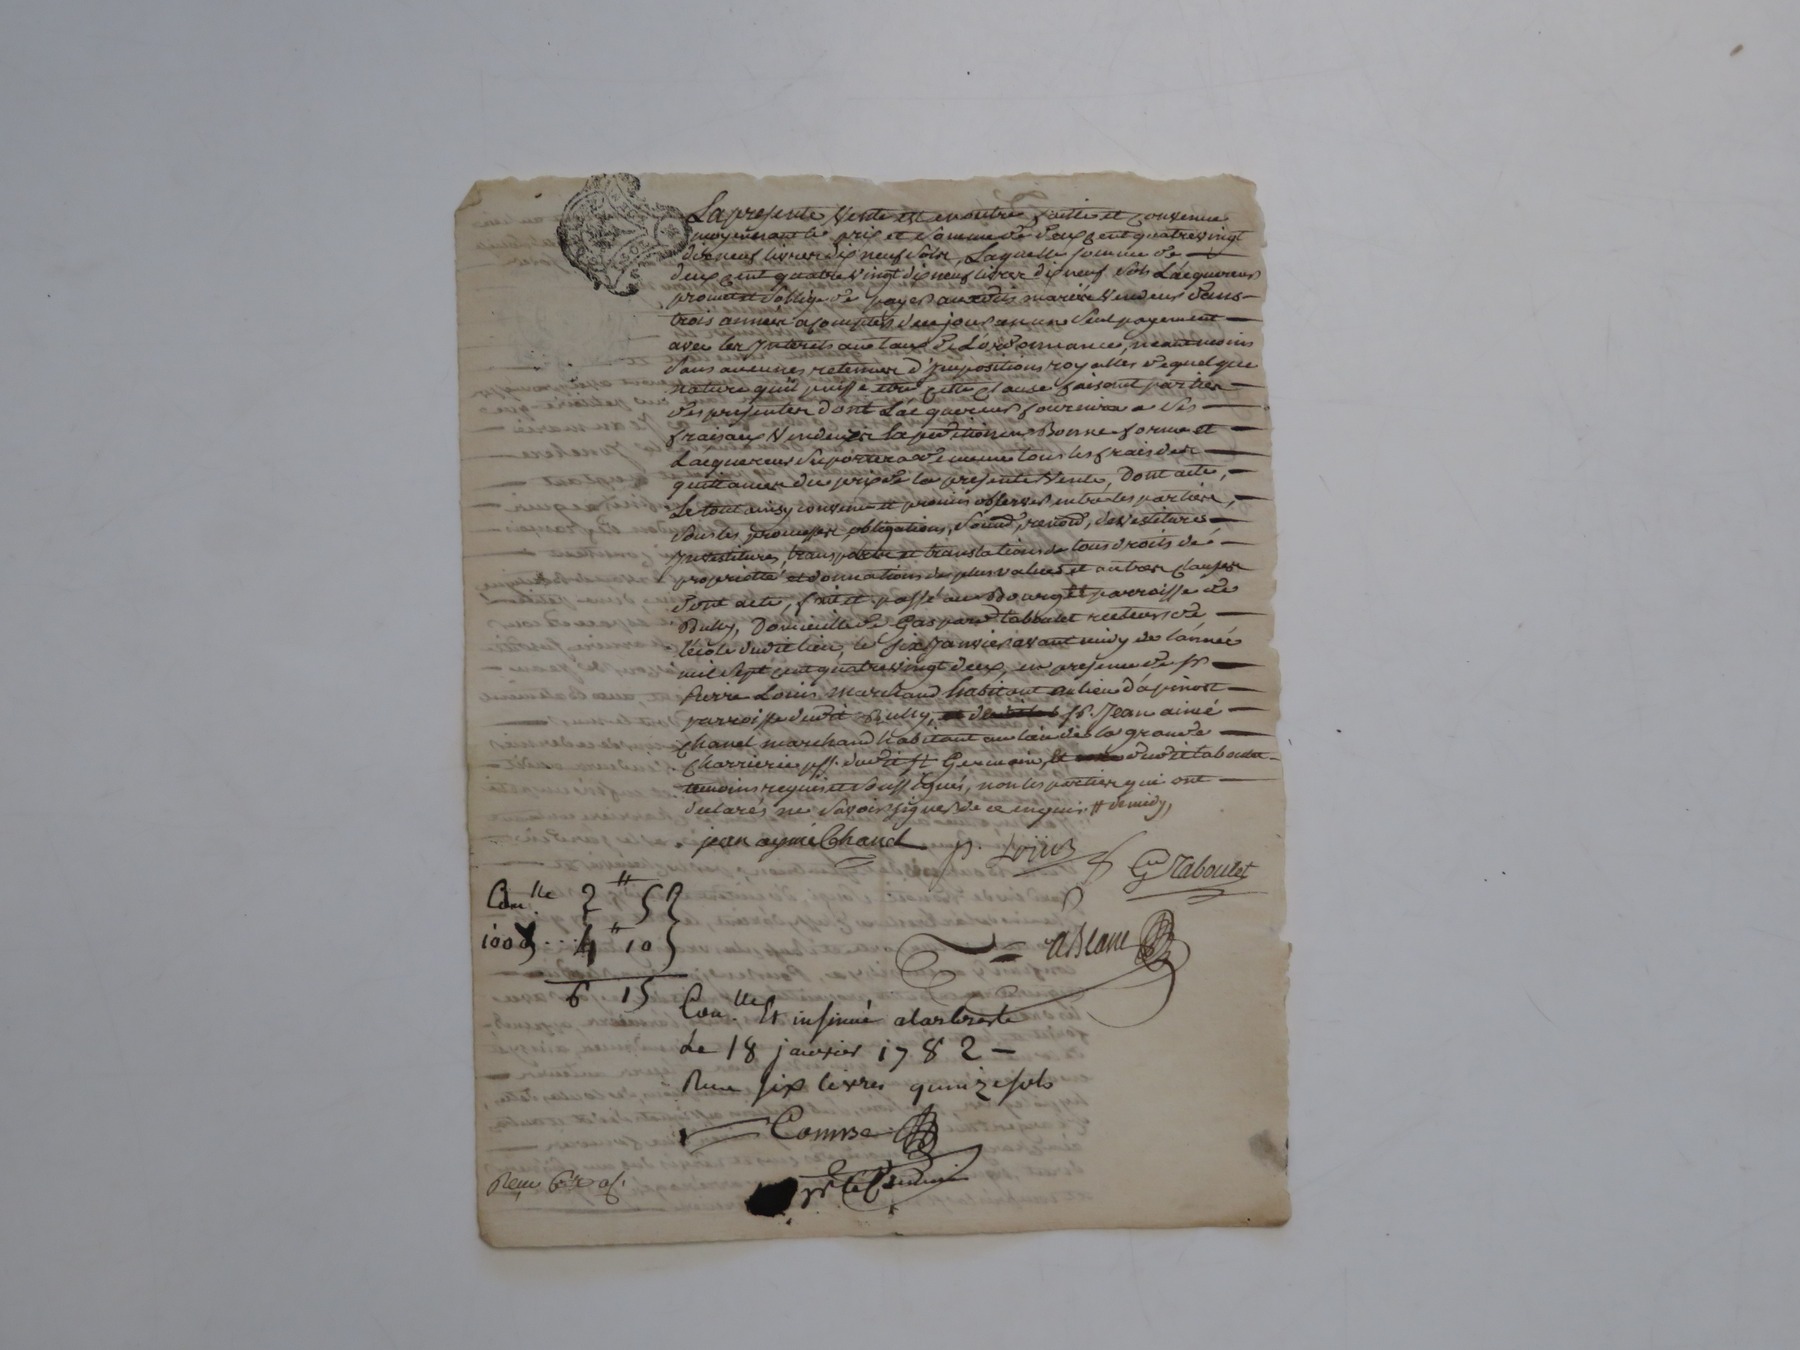 La presente Vente est en outre faitte et Convenue
moyennant le prix et Somme de deux cent quatre vingt
dix neuf livres dix neuf Sols, Laquelle somme de
deux cent quatre vingt dix neuf livres dix neuf Sols L'acquereur
promet et S'oblige de payer auxdits mariés Vendeurs dans
trois années a compter de ce jour en un Seul payement
avec les Interets au taux de L'ordonnance, neantmoins
Sans aucunes retenues d'impositions royalles de quel que
nature qu'il puisse etre Cette Clause faisant partie
des presentes dont L'acquereur fournira a Ses
frais aux Vendeurs La pedition en Bonne forme et
L'acquereur Suportera de meme tous les frais des
quittances du prix de la presente Vente, Dont acte,
Le tout ainsy convenu et promis observer entre les parties,
Sous les promesses, obligations, Soumd, renond, devestitures
Investitures, transports et translations de tous droits de
proprietté et donnations de plus values et autres Clauses
dont acte, fait et passé au Bourg et parroisse de
Bully, Domicille de Gaspard taboulet recteur de
l'école dudit lieu, le six Janvier avant midy de l'année
mil sept cent quatre vingt deux, en presence de sr
Pierre Louis marchand habitant au lieu d'apinost
parroisse dudit Bully, sr. Jean aimé
Chanel marchand habitant au lieu de la grande
Charrierie psse. dudit st Germain, dudit taboulet
temoins requis et Soussignés, non les parties qui ont
declarés ne Savoir signer de ce enquis # de midy,
jean aymé Chanel p. Loüis
Gd Taboulet
Conlle 2# 5s
100e... 4# 10s
6 15
Conlle. Et insinué a larbresle
Le 18 janvier 1782 —
Recu six livres quinze sols
Comse
Recu